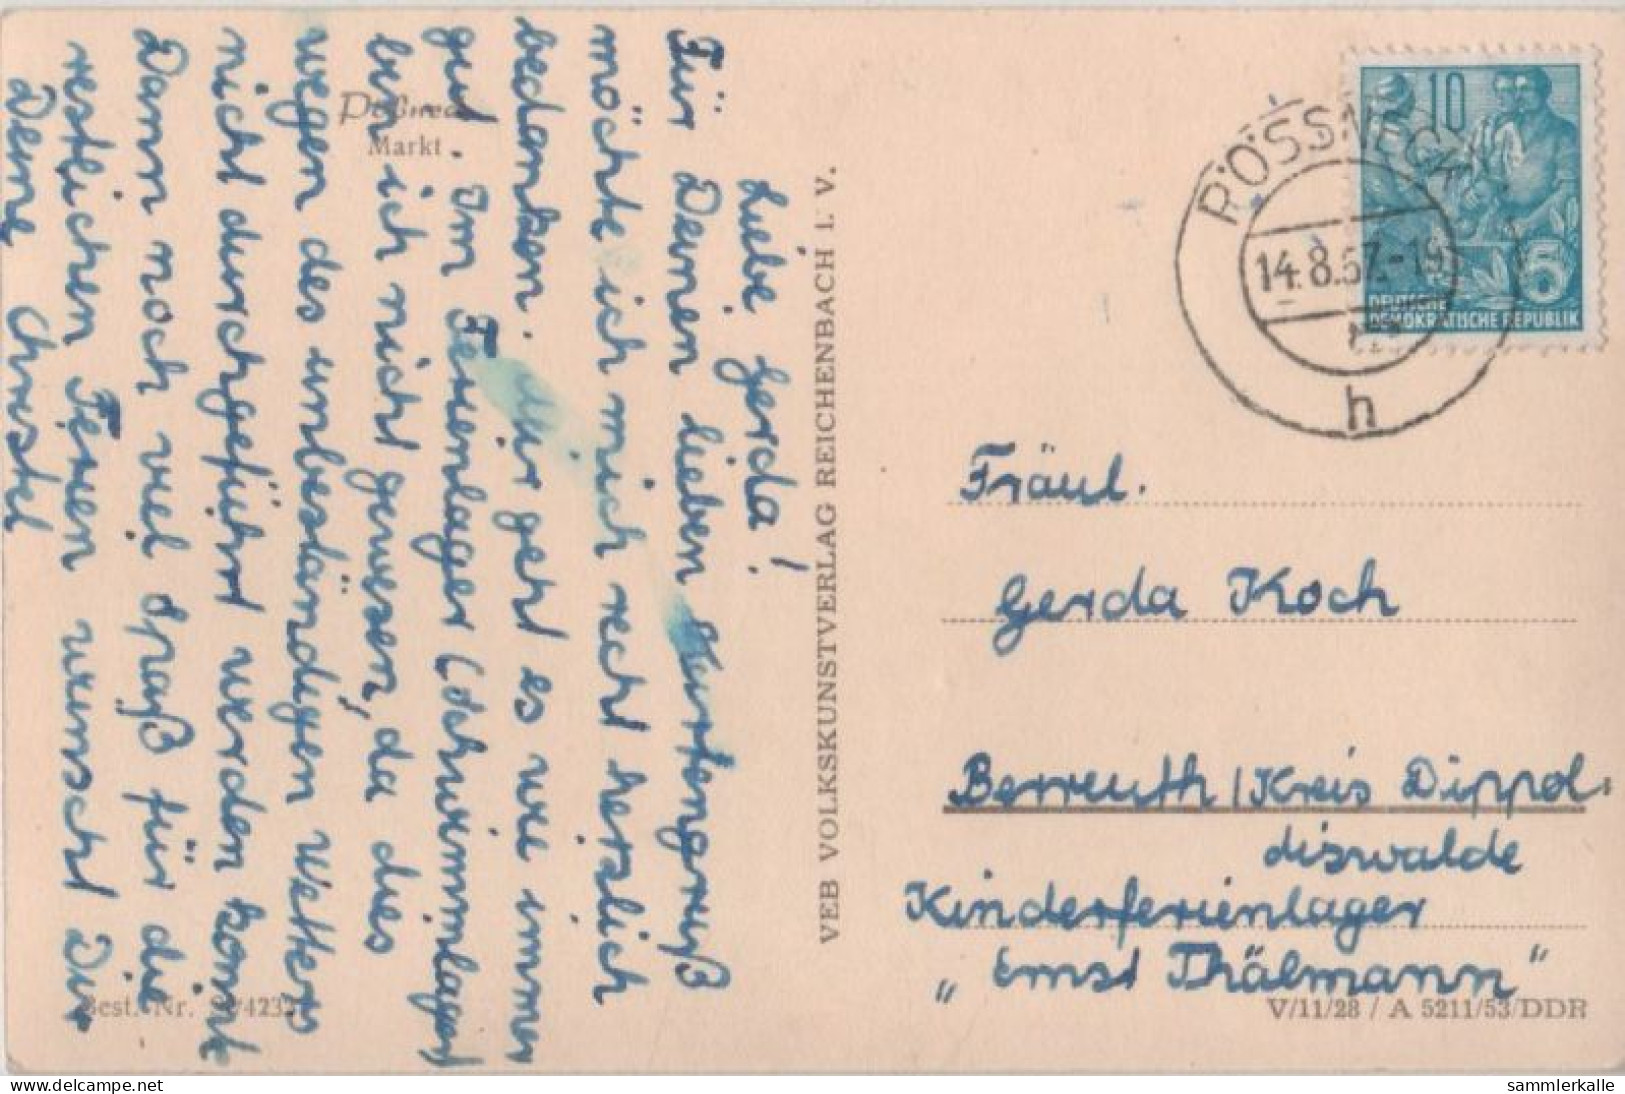 Liebe Gerda!
Für Deinen lieben Kartengruß
möchte ich mich recht herzlich
bedanken. Mir geht es wie immer
gut. Im Ferienlager (Schwimmlager)
bin ich nicht gewesen, da dies
wegen des unbeständigen Wetters
nicht durchgeführt werden konnte
Dann noch viel Spaß für die
restlichen Ferien wünscht Dir
Deine Christel
Pößneck
Markt
Best.-Nr.
VEB VOLKSKUNSTVERLAG REICHENBACH I. V.
PÖSSNECK
14.8.57.-19
h
10
5
DEUTSCHE
DEMOKRATISCHE REPUBLIK
Fräul.
Gerda Koch
Berreuth / Kreis Dippol.
diswalde
Kinderferienlager
„Ernst Thälmann"
V/11/28 / A 5211/53/DDR
www.delcampe.net
sammlerkalle